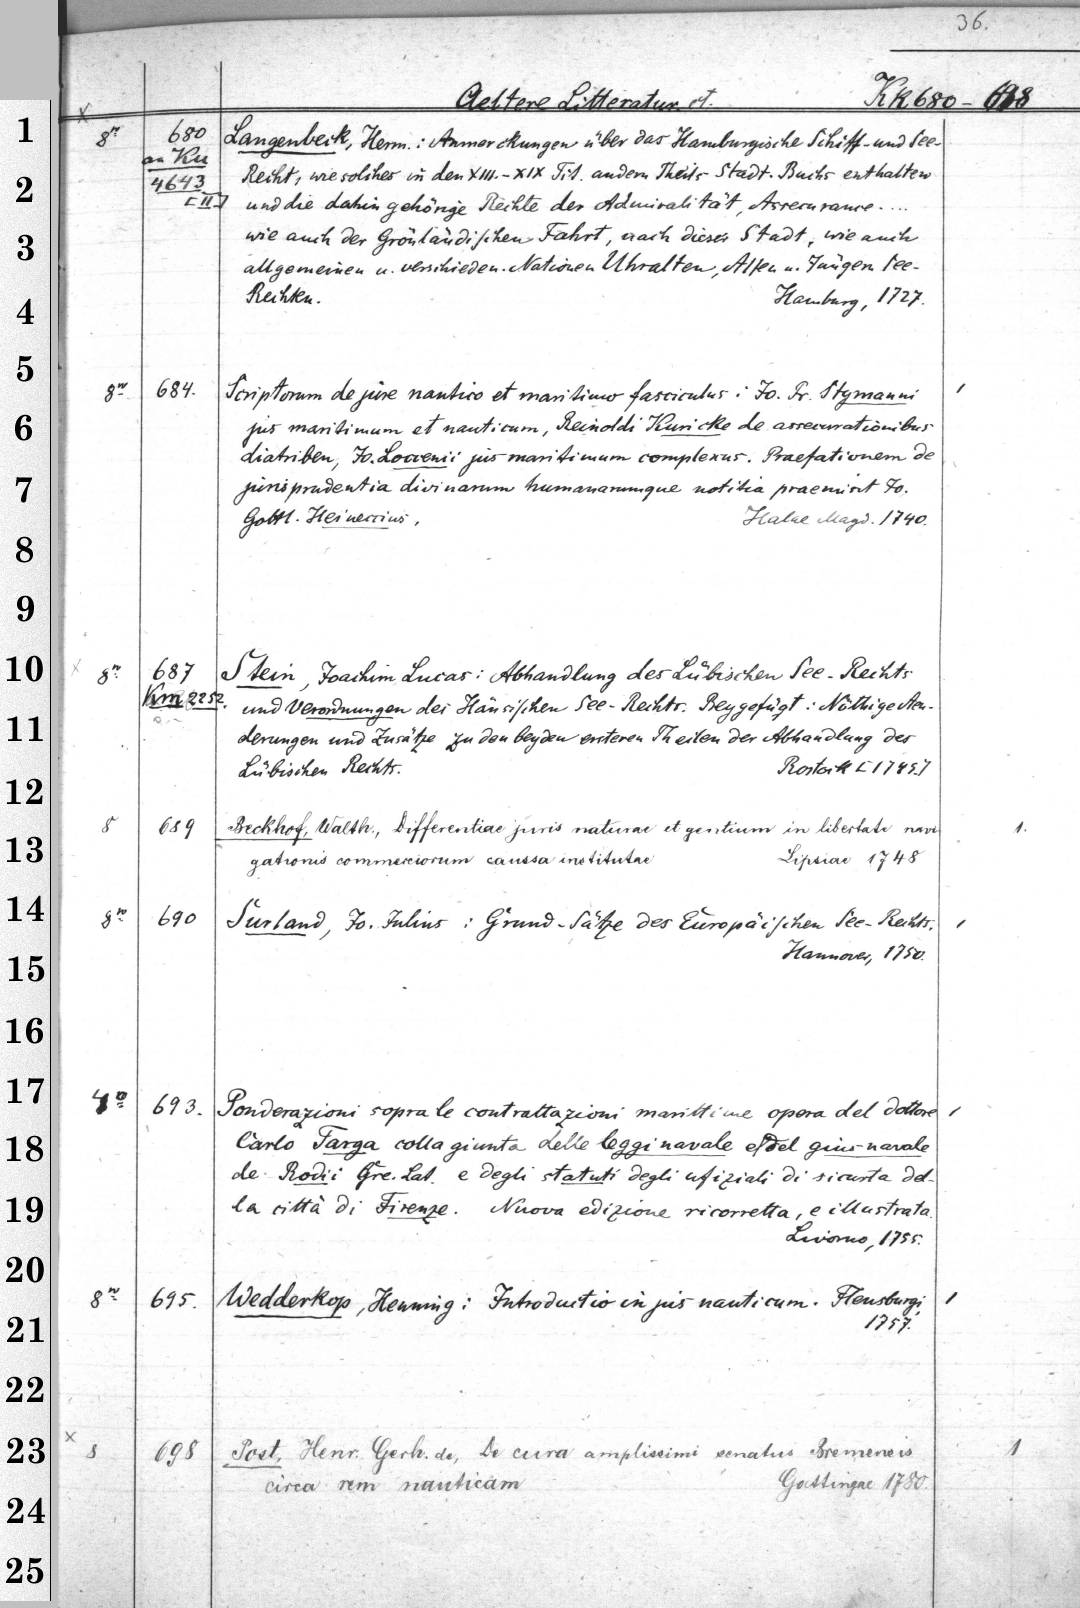 36.
Aeltere Litteratur ct. Kk 680 - 698
8º 680 Langenbeck, Herm.: Anmerckungen über das Hamburgische Schiff- und See-
an Ku
4643
[II]
Recht, wie solches in den XIII.-XIX Tit. andern Theils Stadt-Buchs enthalten
und die dahin gehörige Rechte der Admiralität, Assecurance....
wie auch der Grönländischen Fahrt, nach dieser Stadt, wie auch
allgemeinen u. verschieden. Nationen Uhralten, Alten u. Jüngern See-
Rechten. Hamburg, 1727.
8º 684. Scriptorum de jure nautico et maritimo fasciculus: Jo. Fr. Stymanni
jus maritimum et nauticum, Reinoldi Kuricke de assecurationibus
diatriben, Jo. Loccenii jus maritimum complexus. Praefationem de
jurisprudentia divinarum humanarumque notitia praemisit Jo.
Gottl. Heineccius. Halae Magd. 1740.
x 8º 687 Stein, Joachim Lucas: Abhandlung des Lübischen See-Rechts
Km 2252.
und Verordnungen des Hänsischen See-Rechts. Beygefügt: Nöthige Aen-
derungen und Zusätze zu den beyden ersteren Theilen der Abhandlung des
Lübischen Rechts. Rostock [1745.]
8 689 Beckhof, Walth., Differentiae juris naturae et gentium in libertate navi 1.
gationis commerciorum caussa institutae Lipsiae 1748
8º 690 Surland, Jo. Julius: Grund-Sätze des Europäischen See-Rechts.
Hannover, 1750.
4º 693. Ponderazioni sopra le contrattazioni marittime opera del dottore
Carlo Targa colla giunta delle leggi navale e del gius-navale
de Rodii Gre. Lat. e degli statuti degli ufiziali di sicurta del-
la città di Firenze. Nuova edizione ricorretta, e illustrata.
Livorno, 1755.
8º 695. Wedderkop, Henning: Introductio in jus nauticum. Flensburgi,
1757.
x 8 698 Post, Henr. Gerh. de, De cura amplissimi senatus Bremensis 1
circa rem nauticam Gottingae 1780.
1
2
3
4
5
6
7
8
9
10
11
12
13
14
15
16
17
18
19
20
21
22
23
24
25